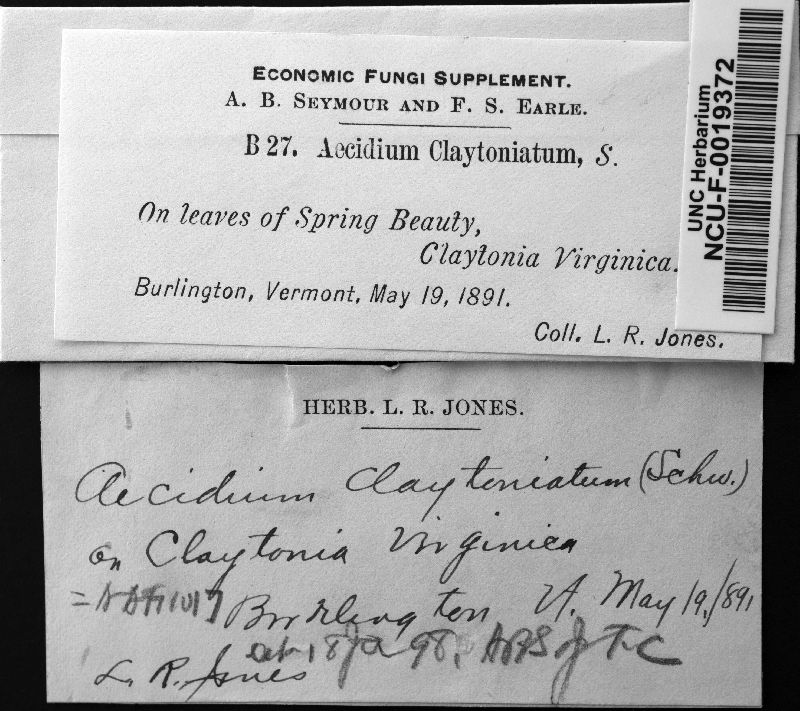 ECONOMIC FUNGI SUPPLEMENT.
A. B. SEYMOUR AND F. S. EARLE.
B 27. Aecidium Claytoniatum, S.
On leaves of Spring Beauty,
Claytonia Virginica.
Burlington, Vermont, May 19, 1891.
Coll. L. R. Jones.
UNC Herbarium
NCU-F-0019372
HERB. L. R. JONES.
Aecidium Claytoniatum (Schw.)
on Claytonia Virginica
Burlington Vt. May 19, 1891
L. R. Jones